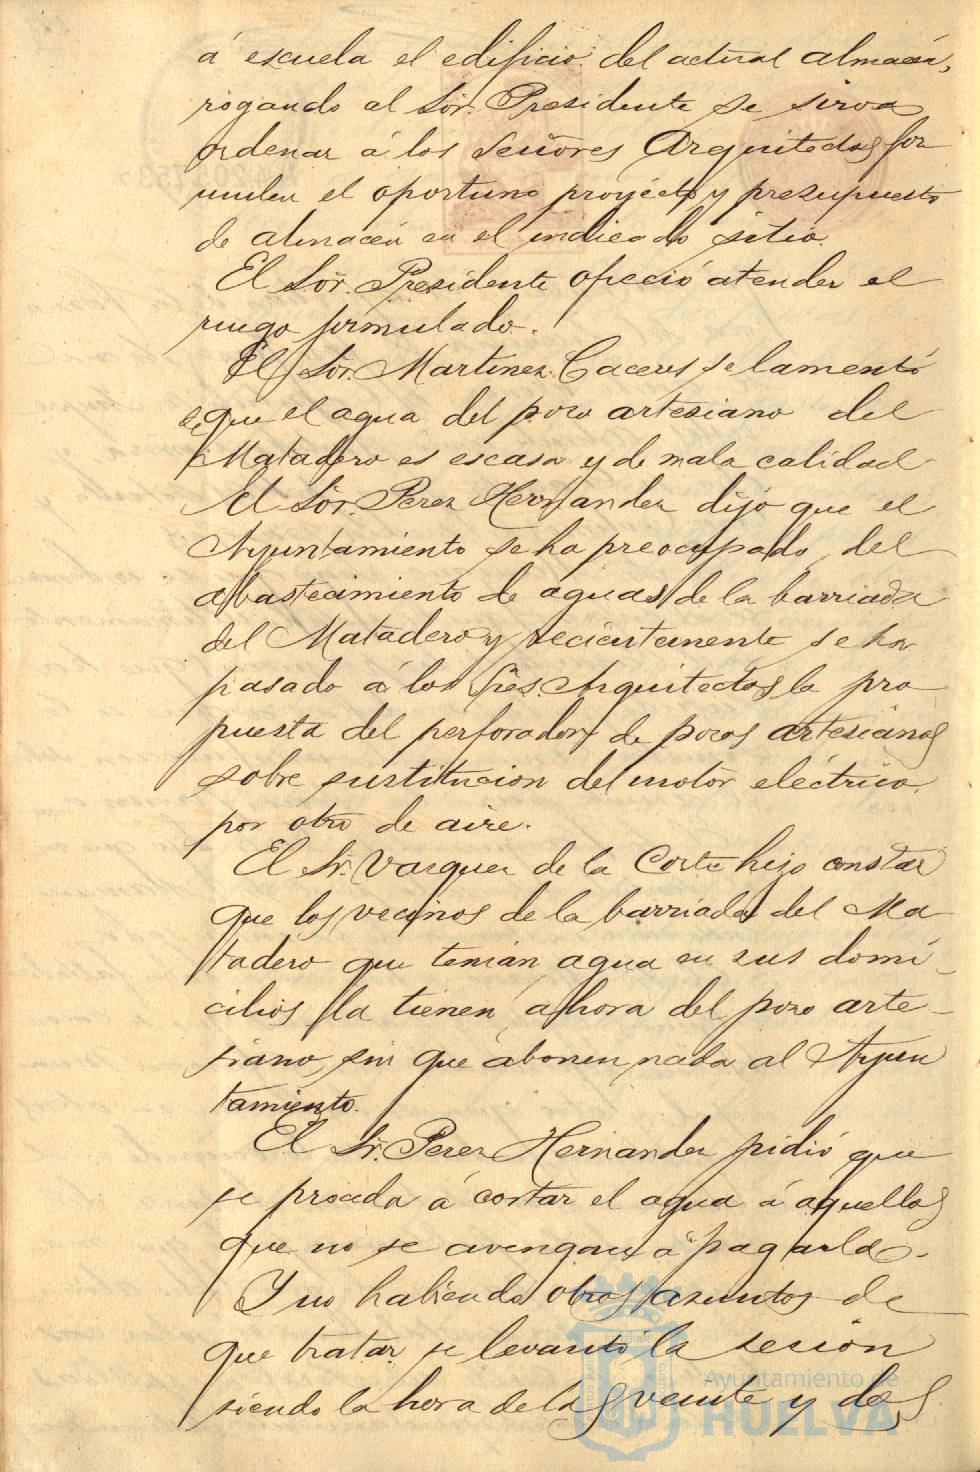 á escuela el edificio del actual almacén,
rogando al Sor. Presidente se sirva
ordenar á los Señores Arquitectos for
mulen el oportuno proyecto y presupuesto
de almacén en el indicado sitio.
El Sor. Presidente ofreció atender el
ruego formulado.
El Sor. Martinez Caceres se lamentó
de que el agua del pozo artesiano del
Matadero es escasa y de mala calidad
El Sor. Perez Hernandez dijo que el
Ayuntamiento se ha preocupado del
abastecimiento de aguas de la barriada
del Matadero y recientemente se ha
pasado á los Sres. Arquitectos la pro
puesta del perforador de pozos artesianos
sobre sustitucion del motor eléctrico
por otro de aire.
El Sr. Vazquez de la Corte hizo constar
que los vecinos de la barriada del Ma
tadero que tenian agua en sus domi-
cilios la tienen ahora del pozo arte-
siano, sin que abonen nada al Ayun
tamiento.
El Sr. Perez Hernandez pidió que
se proceda á cortar el agua á aquellos
que no se avengan á pagarla.
Y no habiendo otros asuntos de
que tratar se levantó la sesión
siendo la hora de las veinte y dos
Ayuntamiento de
HUELVA